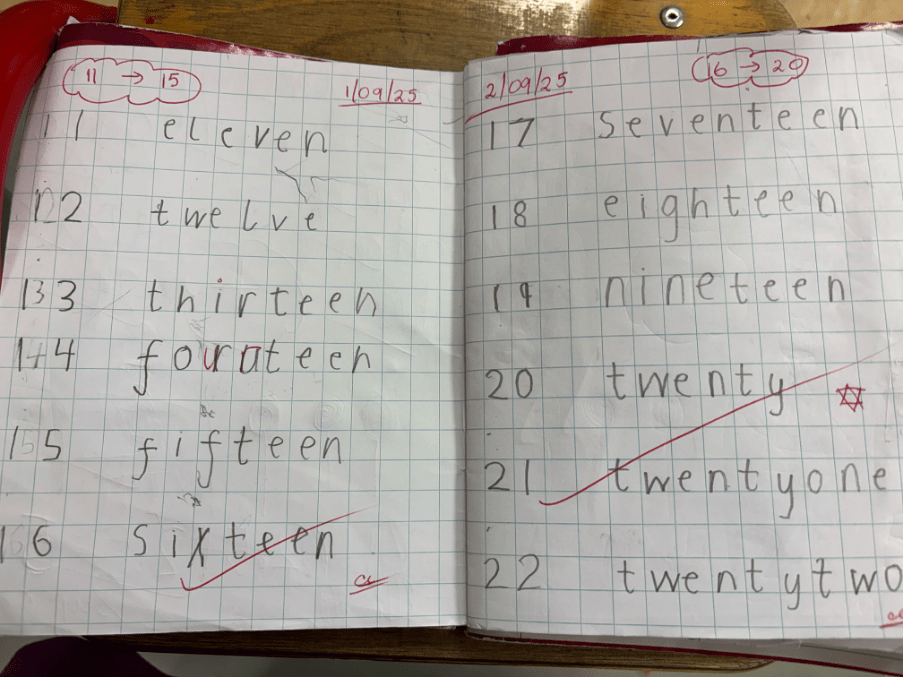 11 → 15
1/09/25
11 eleven
12 twelve
13 thirteen
14 fourteen
15 fifteen
16 sixteen
2/09/25
16 → 20
17 seventeen
18 eighteen
19 nineteen
20 twenty
21 twentyone
22 twentytwo